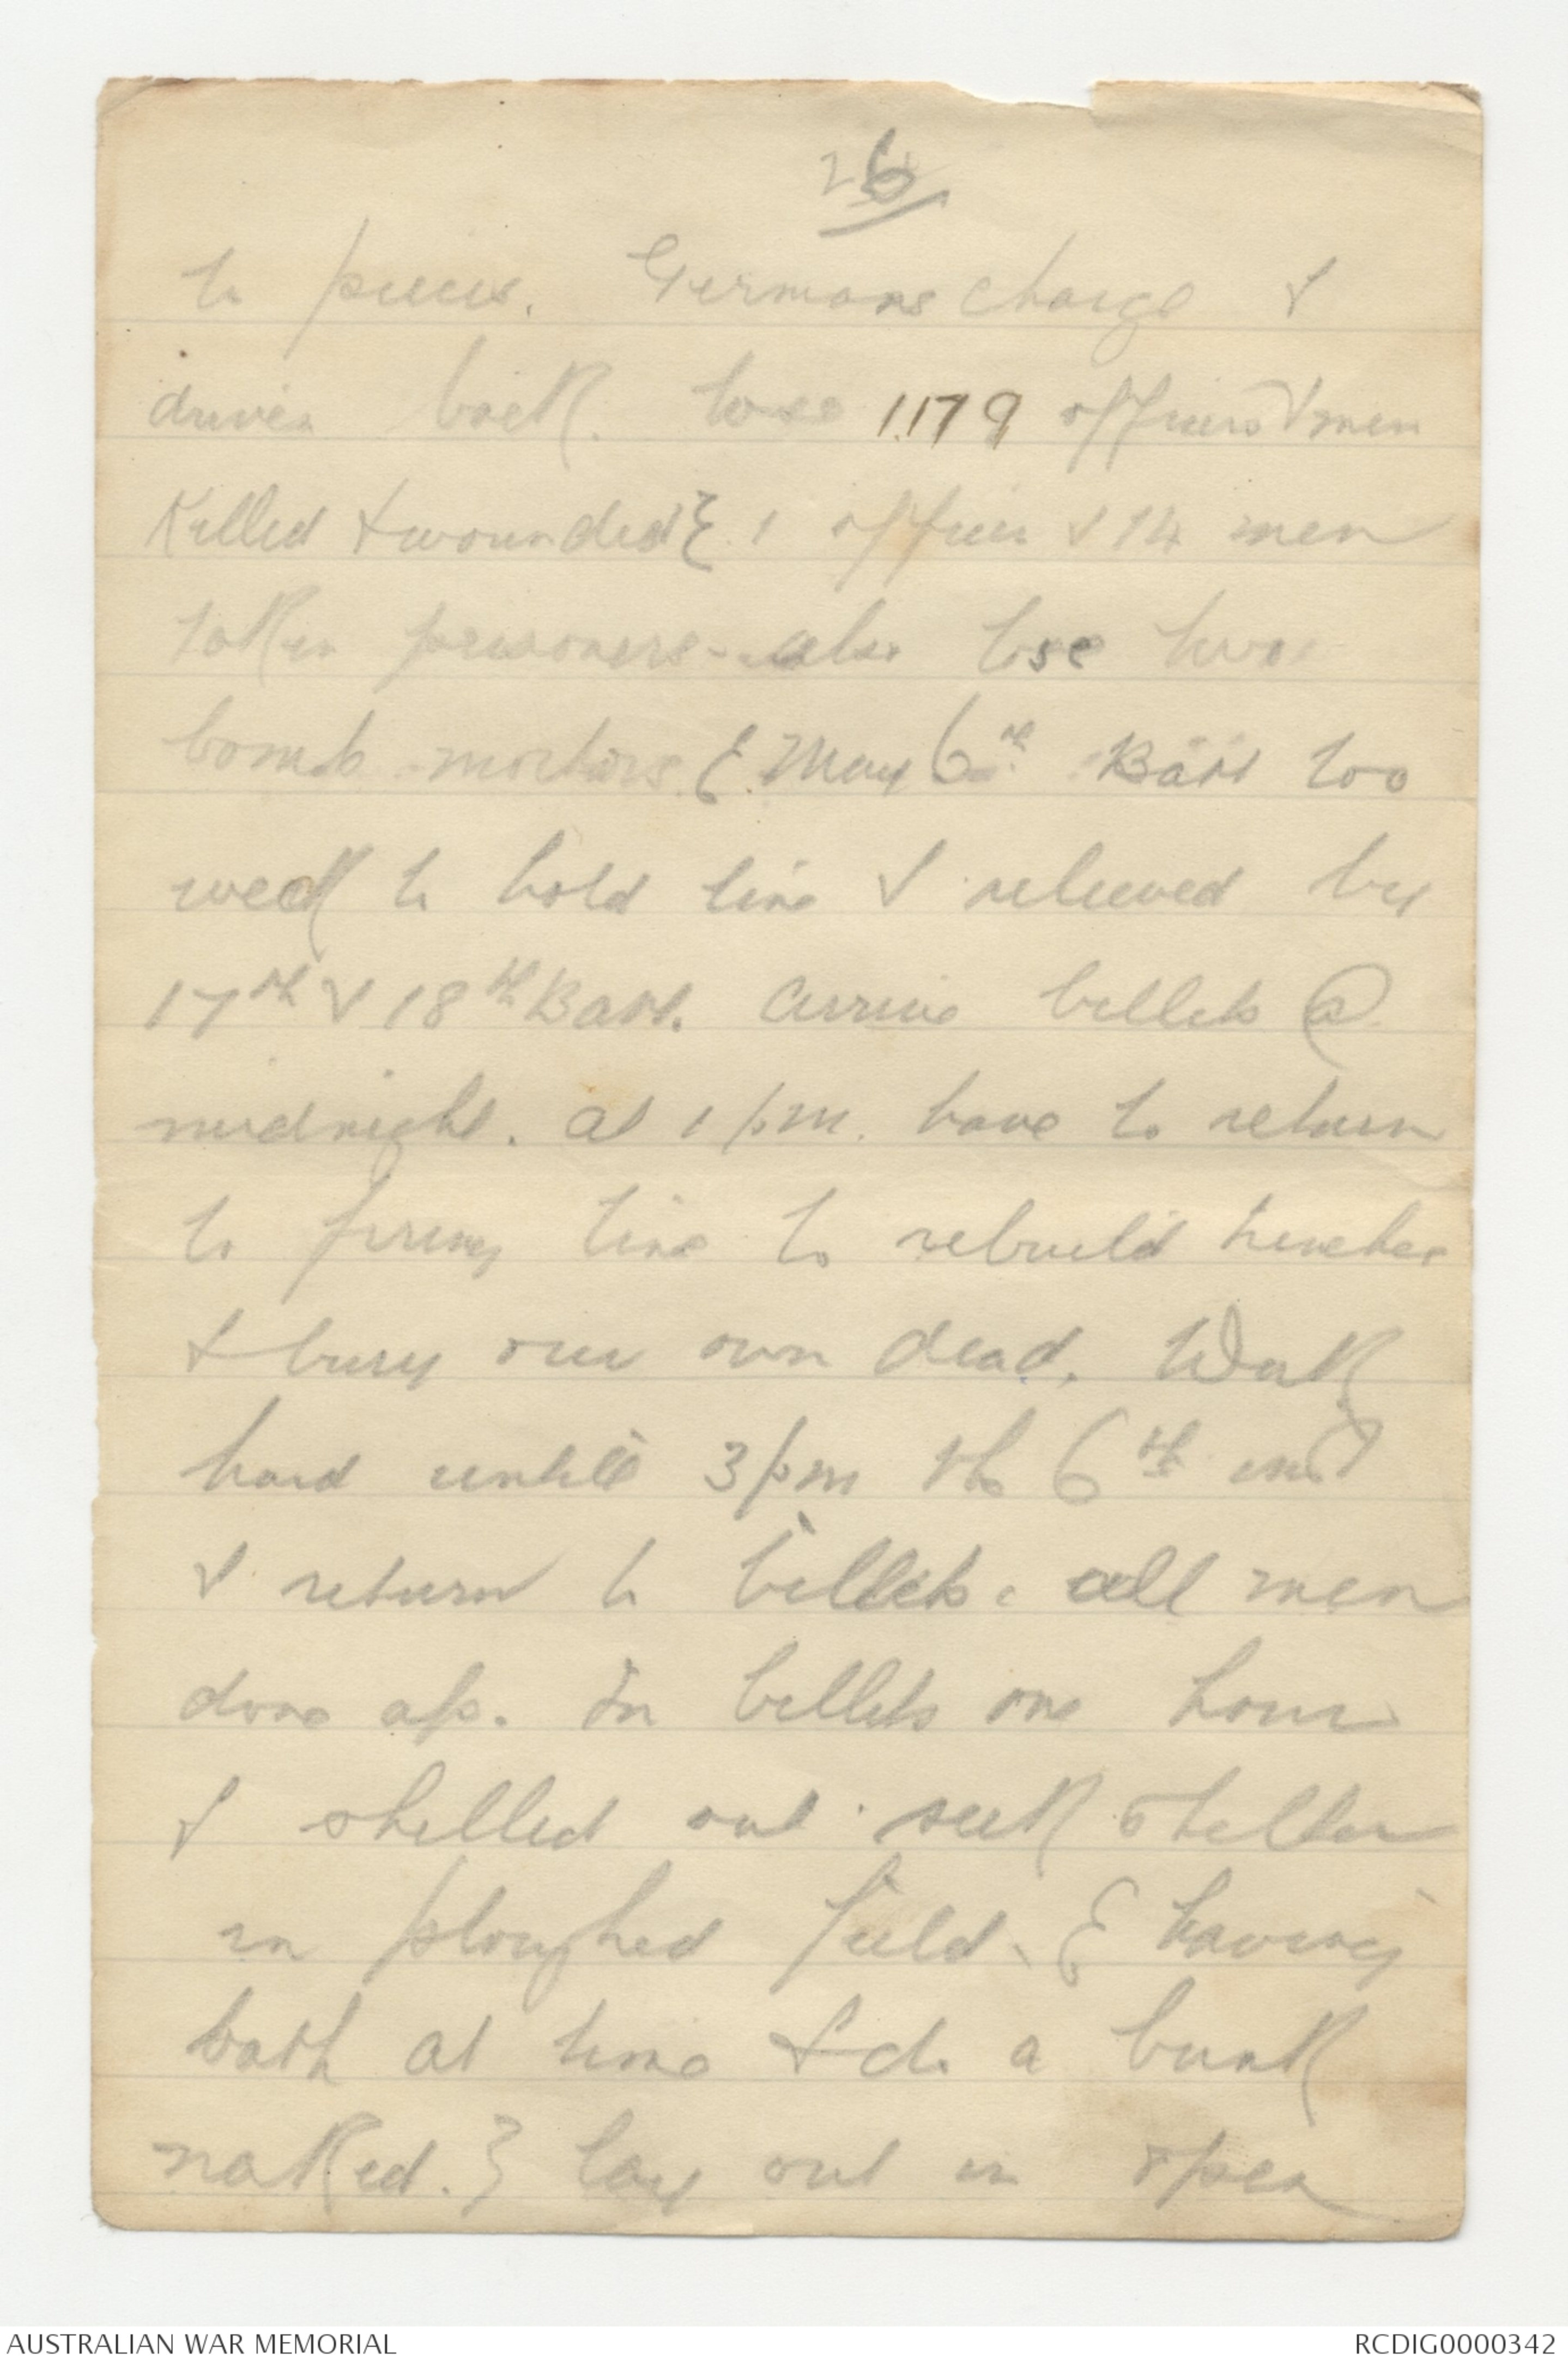 26
to pieces. Germans charge &
driven back. lose 1179 officers & men
Killed & wounded } 1 officer & 14 men
taken prisoners - also lose two
bomb mortars. { May 6th Batt too
weak to hold line & relieved by
17th & 18th Batt. Arrive billets @
midnight. at 1 pm. have to return
to firing line to rebuild trenches
& bury our own dead. Work
hard until 3 pm the 6th inst
& return to billets. all men
done up. In billets one hour
& shelled out. seek shelter
in ploughed field. { having
bath at time & do a bunk
naked. } lay out in open
AUSTRALIAN WAR MEMORIAL
RCDIG0000342